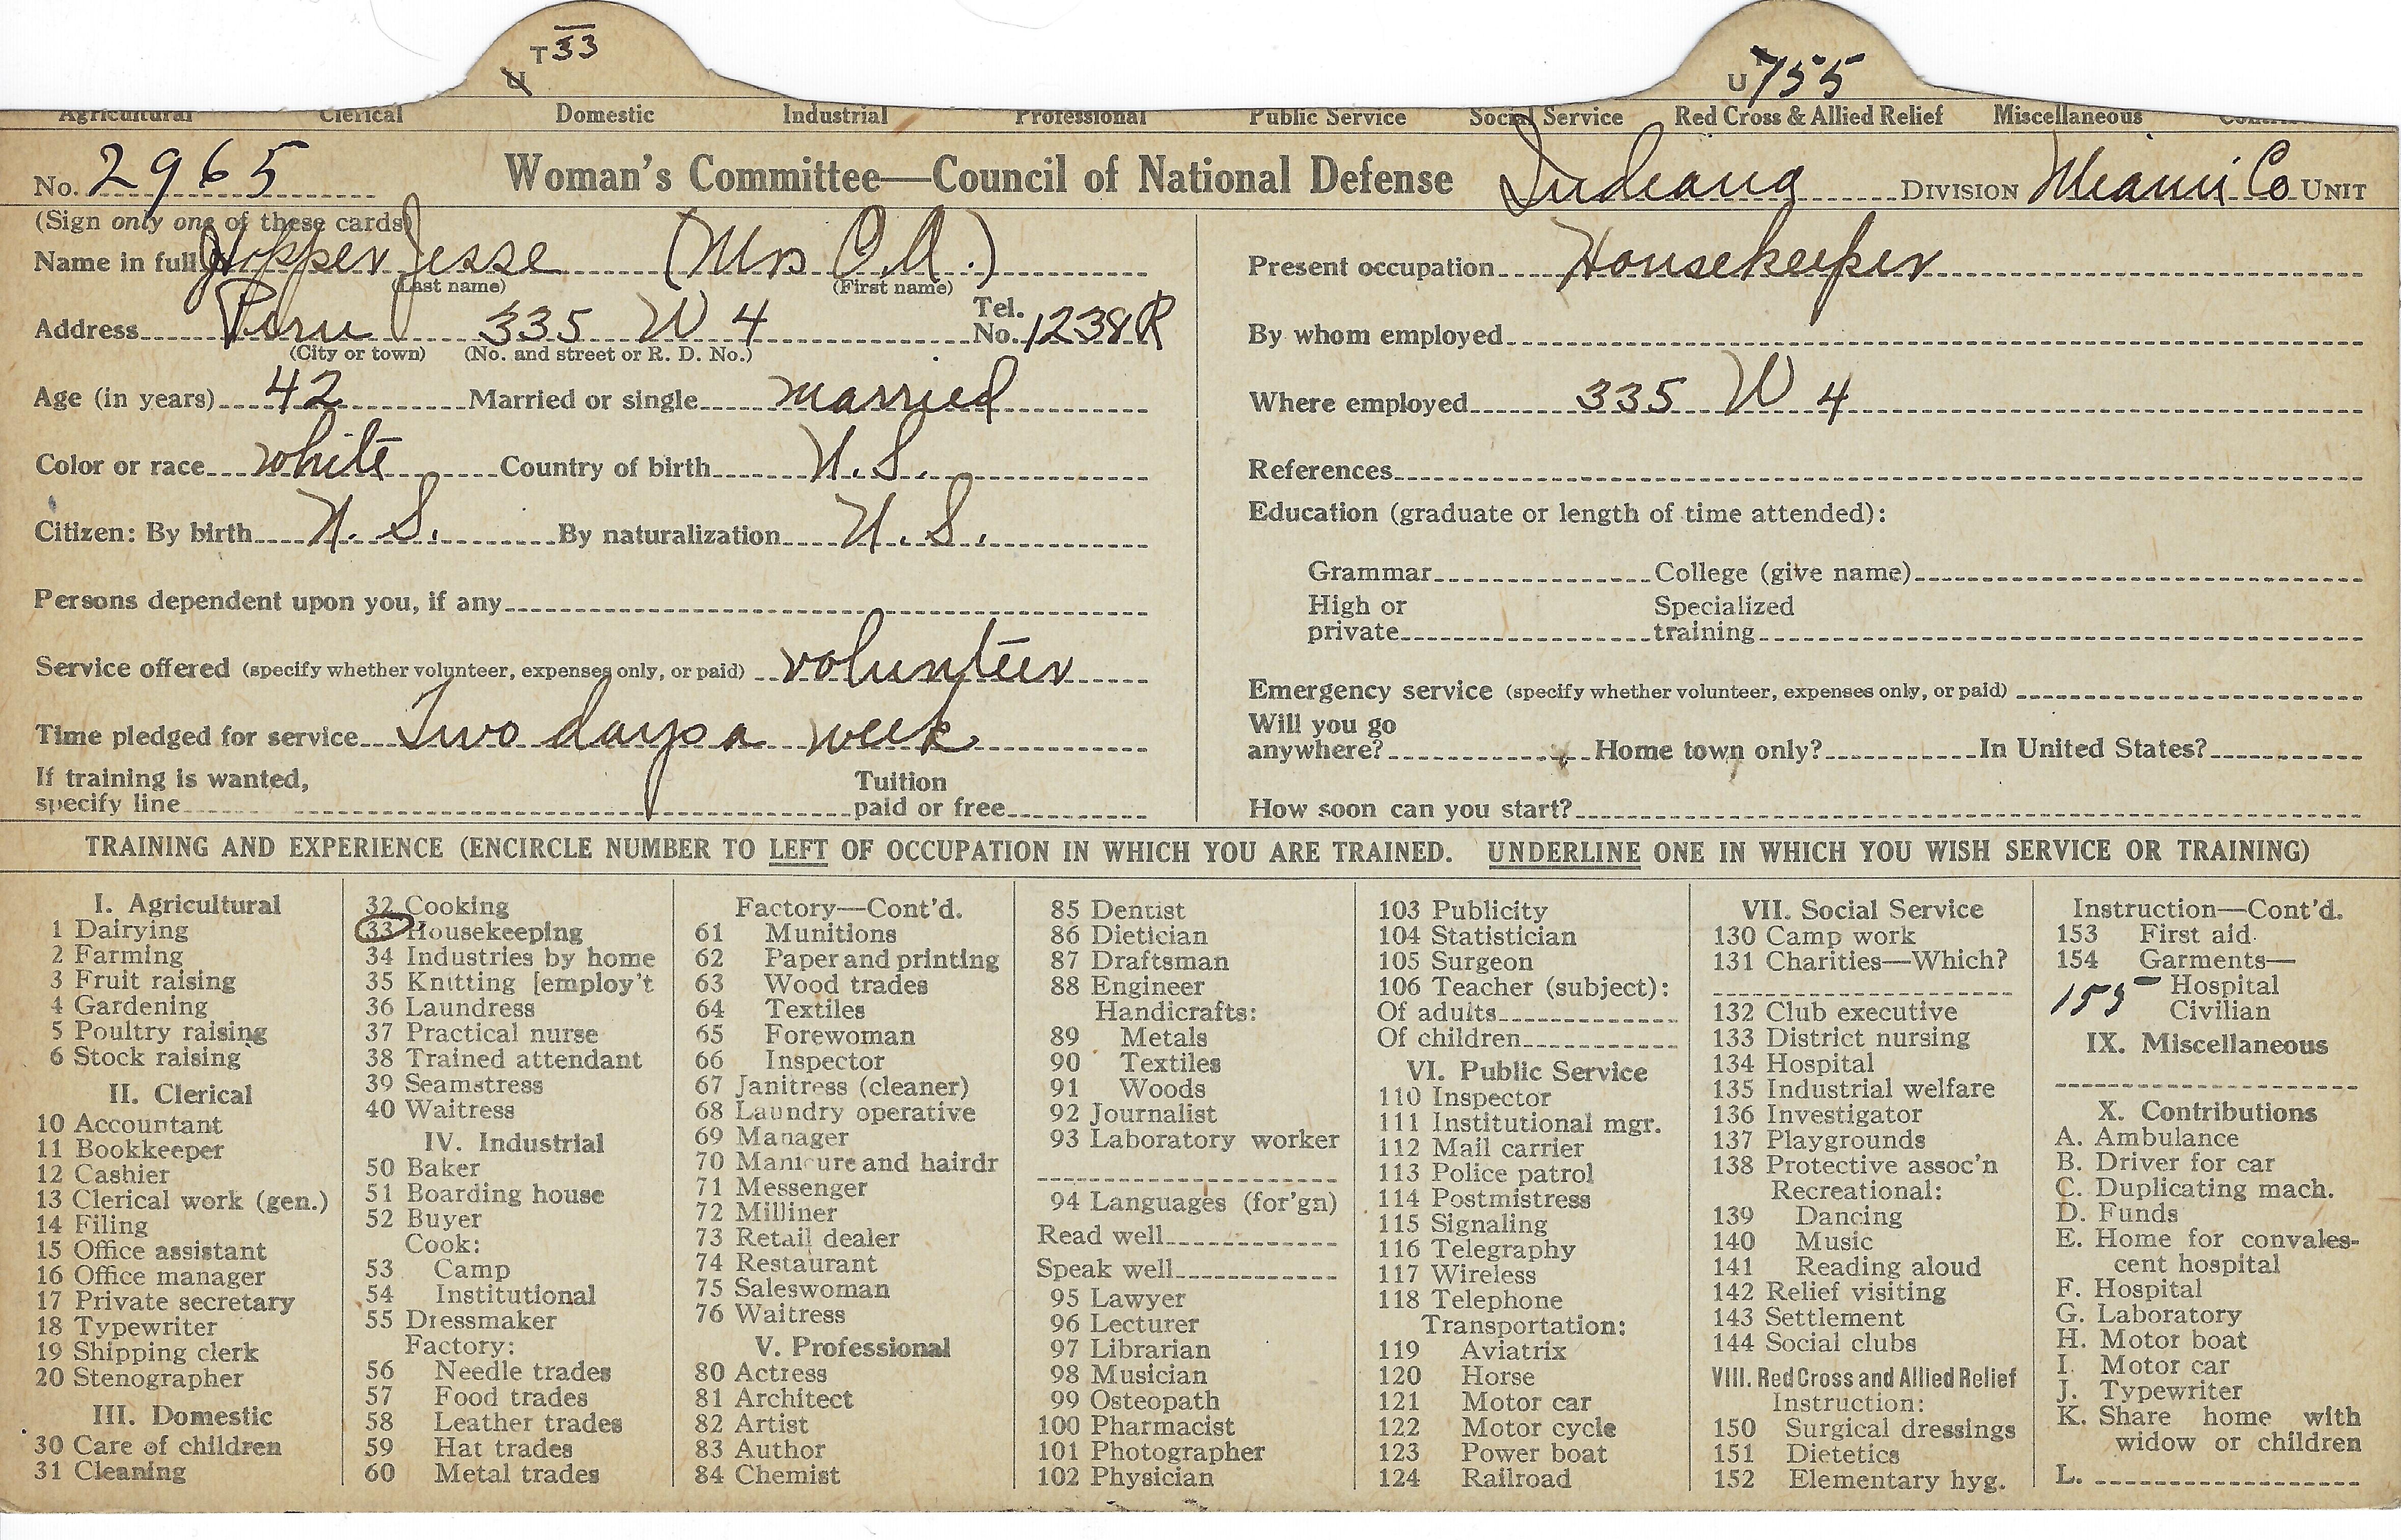 T 33
U
U 755
Agricultural Clerical Domestic Industrial Professional Public Service Social Service Red Cross & Allied Relief Miscellaneous
No. 2965 Woman's Committee—Council of National Defense Indiana DIVISION Miami Co UNIT
(Sign only one of these cards)
Name in full Hopper Jesse (Mrs O.A.)
(Last name) (First name)
Address Peru 335 W 4 Tel. No. 1238R
(City or town) (No. and street or R. D. No.)
Age (in years) 42 Married or single married
Color or race white Country of birth U.S.
Citizen: By birth U.S. By naturalization U.S.
Persons dependent upon you, if any
Service offered (specify whether volunteer, expenses only, or paid) volunteer
Time pledged for service Two days a week
If training is wanted,
specify line
Tuition
paid or free
Present occupation Housekeeper
By whom employed
Where employed 335 W 4
References
Education (graduate or length of time attended):
Grammar College (give name)
High or
private
Specialized
training
Emergency service (specify whether volunteer, expenses only, or paid)
Will you go
anywhere? Home town only? In United States?
How soon can you start?
TRAINING AND EXPERIENCE (ENCIRCLE NUMBER TO LEFT OF OCCUPATION IN WHICH YOU ARE TRAINED. UNDERLINE ONE IN WHICH YOU WISH SERVICE OR TRAINING)
I. Agricultural
1 Dairying
2 Farming
3 Fruit raising
4 Gardening
5 Poultry raising
6 Stock raising
II. Clerical
10 Accountant
11 Bookkeeper
12 Cashier
13 Clerical work (gen.)
14 Filing
15 Office assistant
16 Office manager
17 Private secretary
18 Typewriter
19 Shipping clerk
20 Stenographer
III. Domestic
30 Care of children
31 Cleaning
32 Cooking
33 Housekeeping
34 Industries by home
35 Knitting [employ't
36 Laundress
37 Practical nurse
38 Trained attendant
39 Seamstress
40 Waitress
IV. Industrial
50 Baker
51 Boarding house
52 Buyer
Cook:
53 Camp
54 Institutional
55 Dressmaker
Factory:
56 Needle trades
57 Food trades
58 Leather trades
59 Hat trades
60 Metal trades
Factory—Cont'd.
61 Munitions
62 Paper and printing
63 Wood trades
64 Textiles
65 Forewoman
66 Inspector
67 Janitress (cleaner)
68 Laundry operative
69 Manager
70 Manicure and hairdr
71 Messenger
72 Milliner
73 Retail dealer
74 Restaurant
75 Saleswoman
76 Waitress
V. Professional
80 Actress
81 Architect
82 Artist
83 Author
84 Chemist
85 Dentist
86 Dietician
87 Draftsman
88 Engineer
Handicrafts:
89 Metals
90 Textiles
91 Woods
92 Journalist
93 Laboratory worker
94 Languages (for'gn)
Read well
Speak well
95 Lawyer
96 Lecturer
97 Librarian
98 Musician
99 Osteopath
100 Pharmacist
101 Photographer
102 Physician
103 Publicity
104 Statistician
105 Surgeon
106 Teacher (subject):
Of adults
Of children
VI. Public Service
110 Inspector
111 Institutional mgr.
112 Mail carrier
113 Police patrol
114 Postmistress
115 Signaling
116 Telegraphy
117 Wireless
118 Telephone
Transportation:
119 Aviatrix
120 Horse
121 Motor car
122 Motor cycle
123 Power boat
124 Railroad
VII. Social Service
130 Camp work
131 Charities—Which?
132 Club executive
133 District nursing
134 Hospital
135 Industrial welfare
136 Investigator
137 Playgrounds
138 Protective assoc'n
Recreational:
139 Dancing
140 Music
141 Reading aloud
142 Relief visiting
143 Settlement
144 Social clubs
VIII. Red Cross and Allied Relief
Instruction:
150 Surgical dressings
151 Dietetics
152 Elementary hyg.
Instruction—Cont'd.
153 First aid
154 Garments—
155 Hospital
Civilian
IX. Miscellaneous
X. Contributions
A. Ambulance
B. Driver for car
C. Duplicating mach.
D. Funds
E. Home for convales-
cent hospital
F. Hospital
G. Laboratory
H. Motor boat
I. Motor car
J. Typewriter
K. Share home with
widow or children
L.